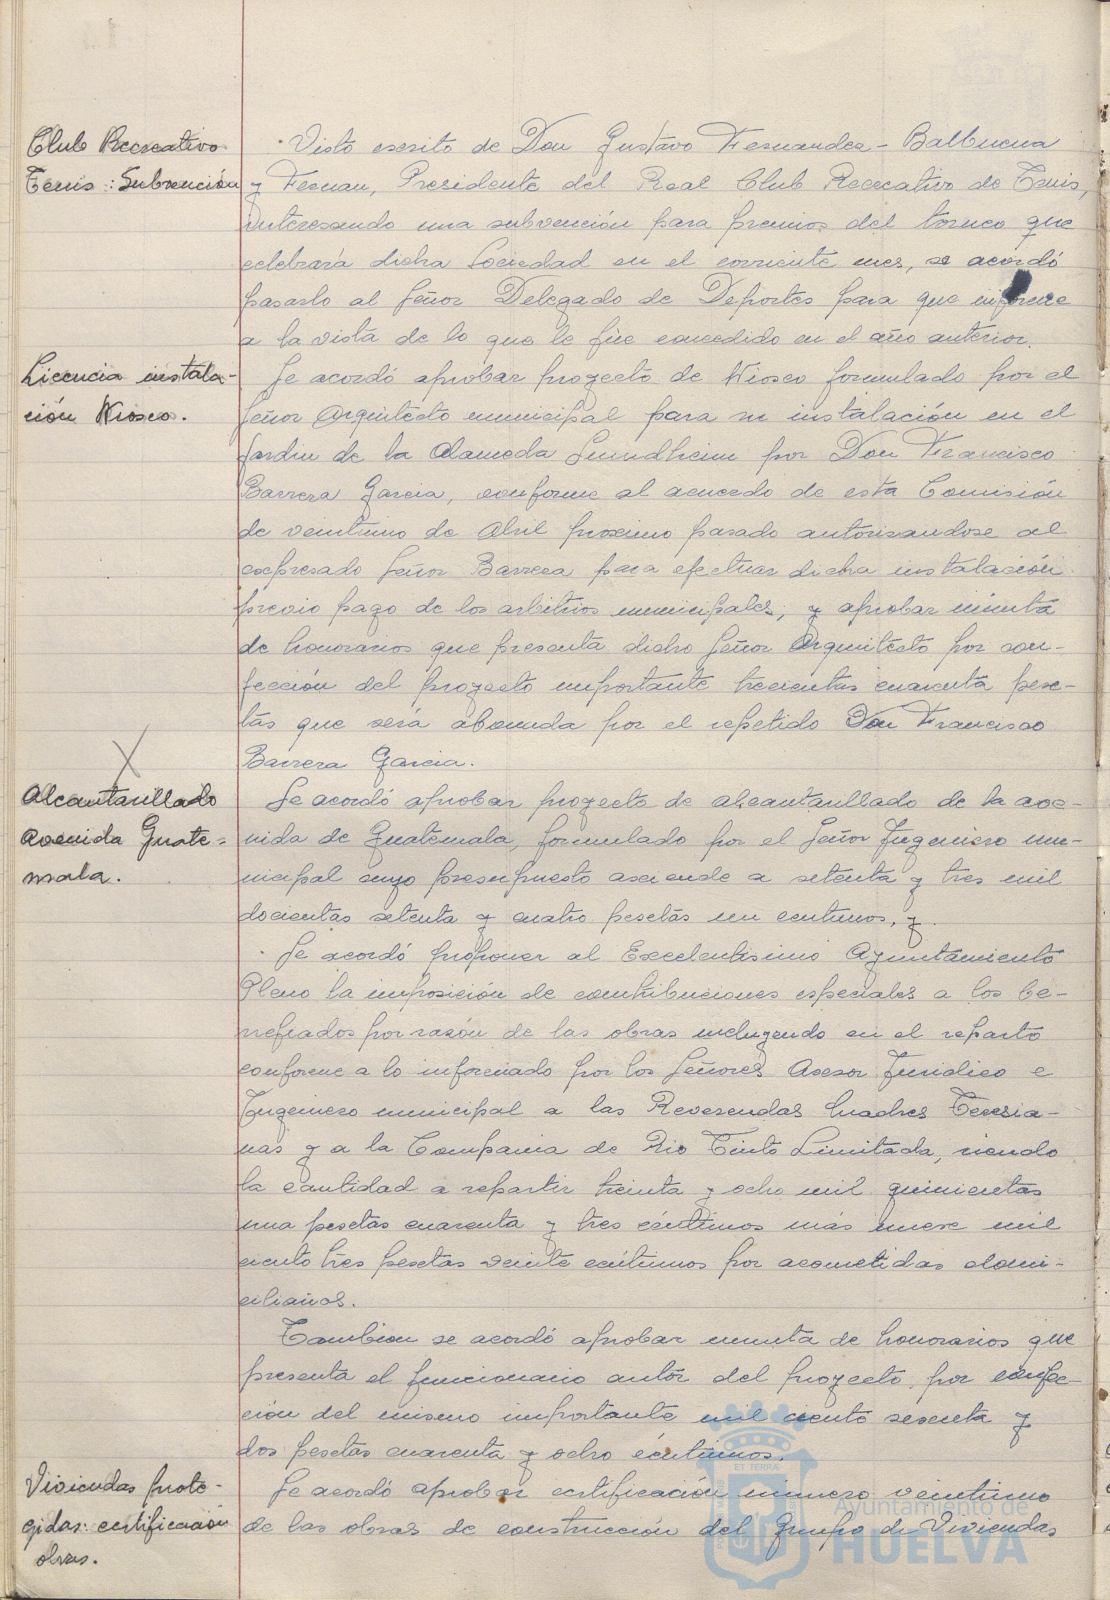 Club Recreativo
Tenis: Subvención
· Visto escrito de Don Gustavo Fernandez-Balbuena
y Ferran, Presidente del Real Club Recreativo de Tenis,
interesando una subvención para premios del torneo que
celebrará dicha Sociedad en el corriente mes, se acordó
pasarlo al Señor Delegado de Deportes para que informe
a la vista de lo que le fue concedido en el año anterior.
Licencia instala-
ción Kiosco.
Se acordó aprobar proyecto de Kiosco formulado por el
Señor Arquitecto municipal para su instalación en el
Jardin de la Alameda Sundheim por Don Francisco
Barrera Garcia, conforme al acuerdo de esta Comisión
de veintiuno de Abril proximo pasado autorizandose al
expresado Señor Barrera para efectuar dicha instalación
previo pago de los arbitrios municipales, y aprobar minuta
de honorarios que presenta dicho Señor Arquitecto por con-
fección del proyecto importante trecientas cuarenta pese-
tas que será abonada por el repetido Don Francisco
Barrera Garcia.
Alcantarillado
Avenida Guate=
mala.
Se acordó aprobar proyecto de alcantarillado de la ave-
nida de Guatemala, formulado por el Señor Ingeniero mu-
nicipal cuyo presupuesto asciende a setenta y tres mil
docientas setenta y cuatro pesetas un centimos, y
· Se acordó proponer al Excelentisimo Ayuntamiento
Pleno la imposición de contribuciones especiales a los be-
neficiados por razón de las obras incluyendo en el reparto
conforme a lo informado por los Señores Asesor Juridico e
Ingeniero municipal a las Reverendas Madres Teresia-
nas y a la Compañia de Rio Tinto Limitada, siendo
la cantidad a repartir treinta y ocho mil quinientas
una pesetas cuarenta y tres céntimos más nueve mil
ciento tres pesetas veinte céntimos por acometidas domi-
ciliarias.
Tambien se acordó aprobar minuta de honorarios que
presenta el funcionario autor del proyecto por confec-
ción del mismo importante mil ciento sesenta y
dos pesetas cuarenta y ocho céntimos.
Viviendas prote-
gidas: certificación
obras.
Se acordó aprobar certificación número veintiuno
de las obras de construcción del Grupo de Viviendas
ET TERRA
Ayuntamiento de
HUELVA